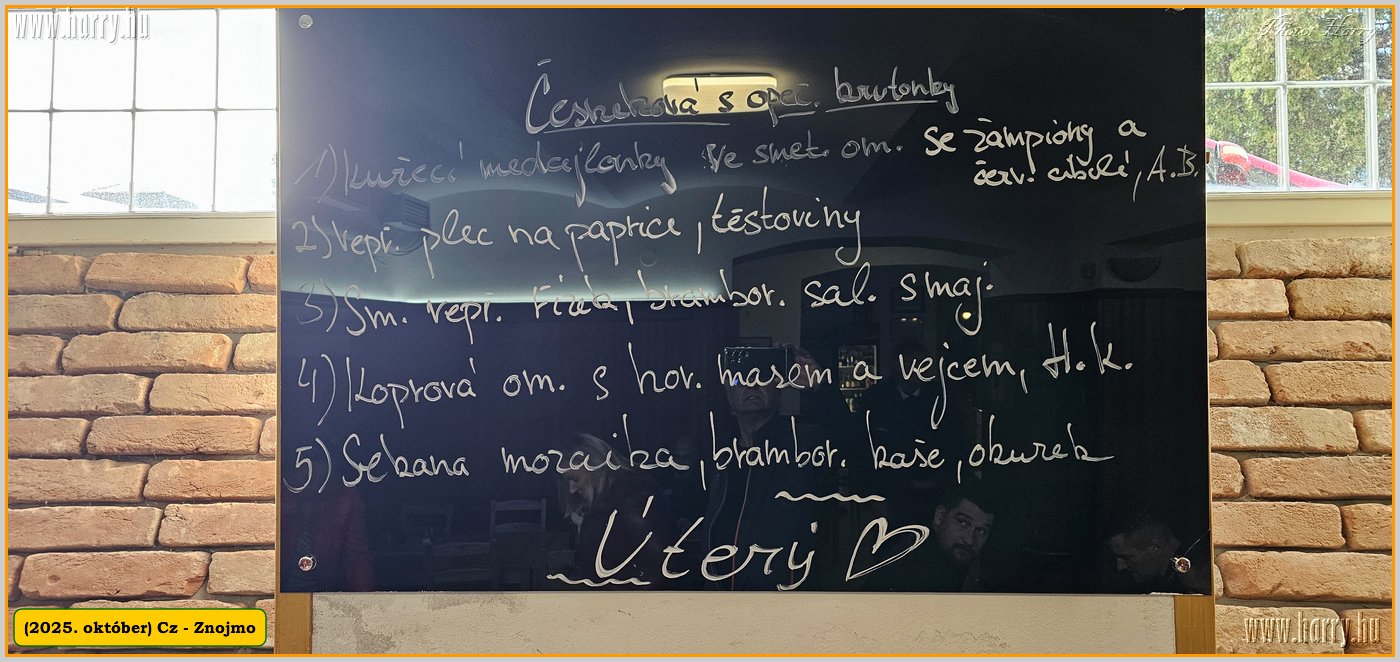 www.harry.hu
Photo: Harry
Česneková s opeč. krutonky
1) Kuřecí medajlonky ve smet. om. se žampióny a
červ. cibulí, A.B.
2) vepř. plec na paprice, těstoviny
3) Sm. vepř. řízek, brambor. sal. s maj.
4) Koprová om. s hov. masem a vejcem, H.k.
5) Sekaná mozaika, brambor. kaše, okurek
Úterý
(2025. október) Cz - Znojmo
www.harry.hu